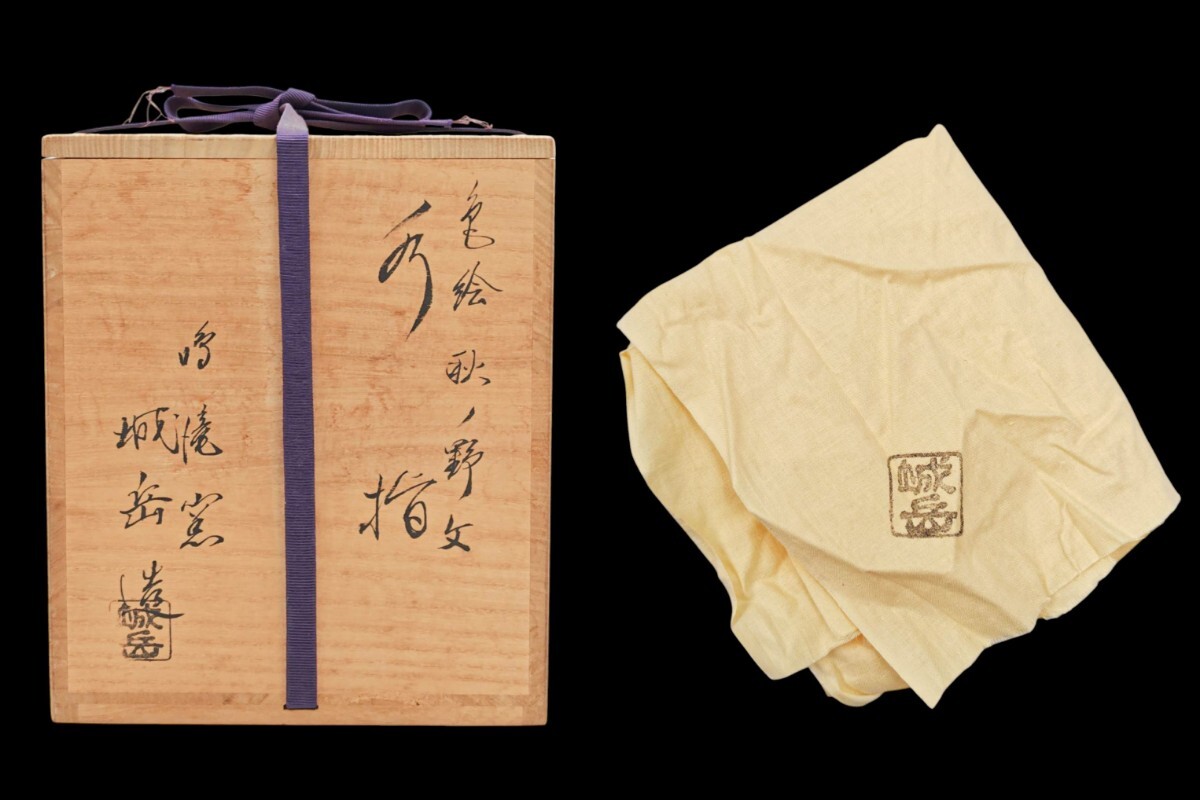 色絵 秋ノ野文
水指
鳴滝窯
城岳 造
城岳
城岳